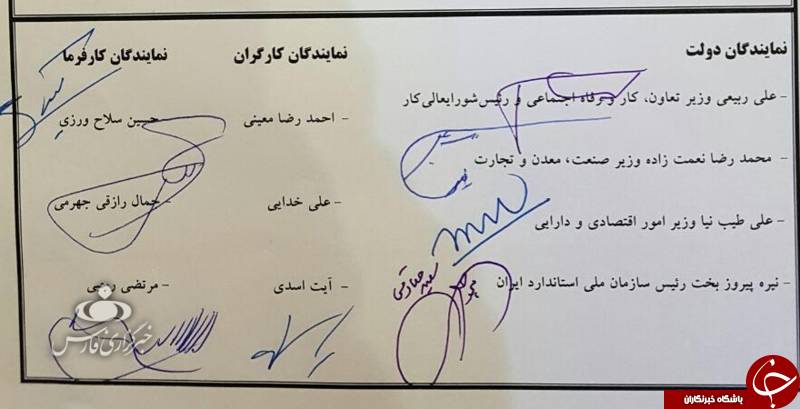 نمایندگان دولت
- علی ربیعی وزیر تعاون، کار و رفاه اجتماعی و رئیس شورایعالی کار
- محمد رضا نعمت زاده وزیر صنعت، معدن و تجارت
- علی طیب نیا وزیر امور اقتصادی و دارایی
- نیره پیروز بخت رئیس سازمان ملی استاندارد ایران
نمایندگان کارگران
- احمد رضا معینی
- علی خدایی
- آیت اسدی
نمایندگان کارفرما
- حسین سلاح ورزی
- جمال رازقی جهرمی
- مرتضی
خبرگزاری فارس
باشگاه خبرنگاران